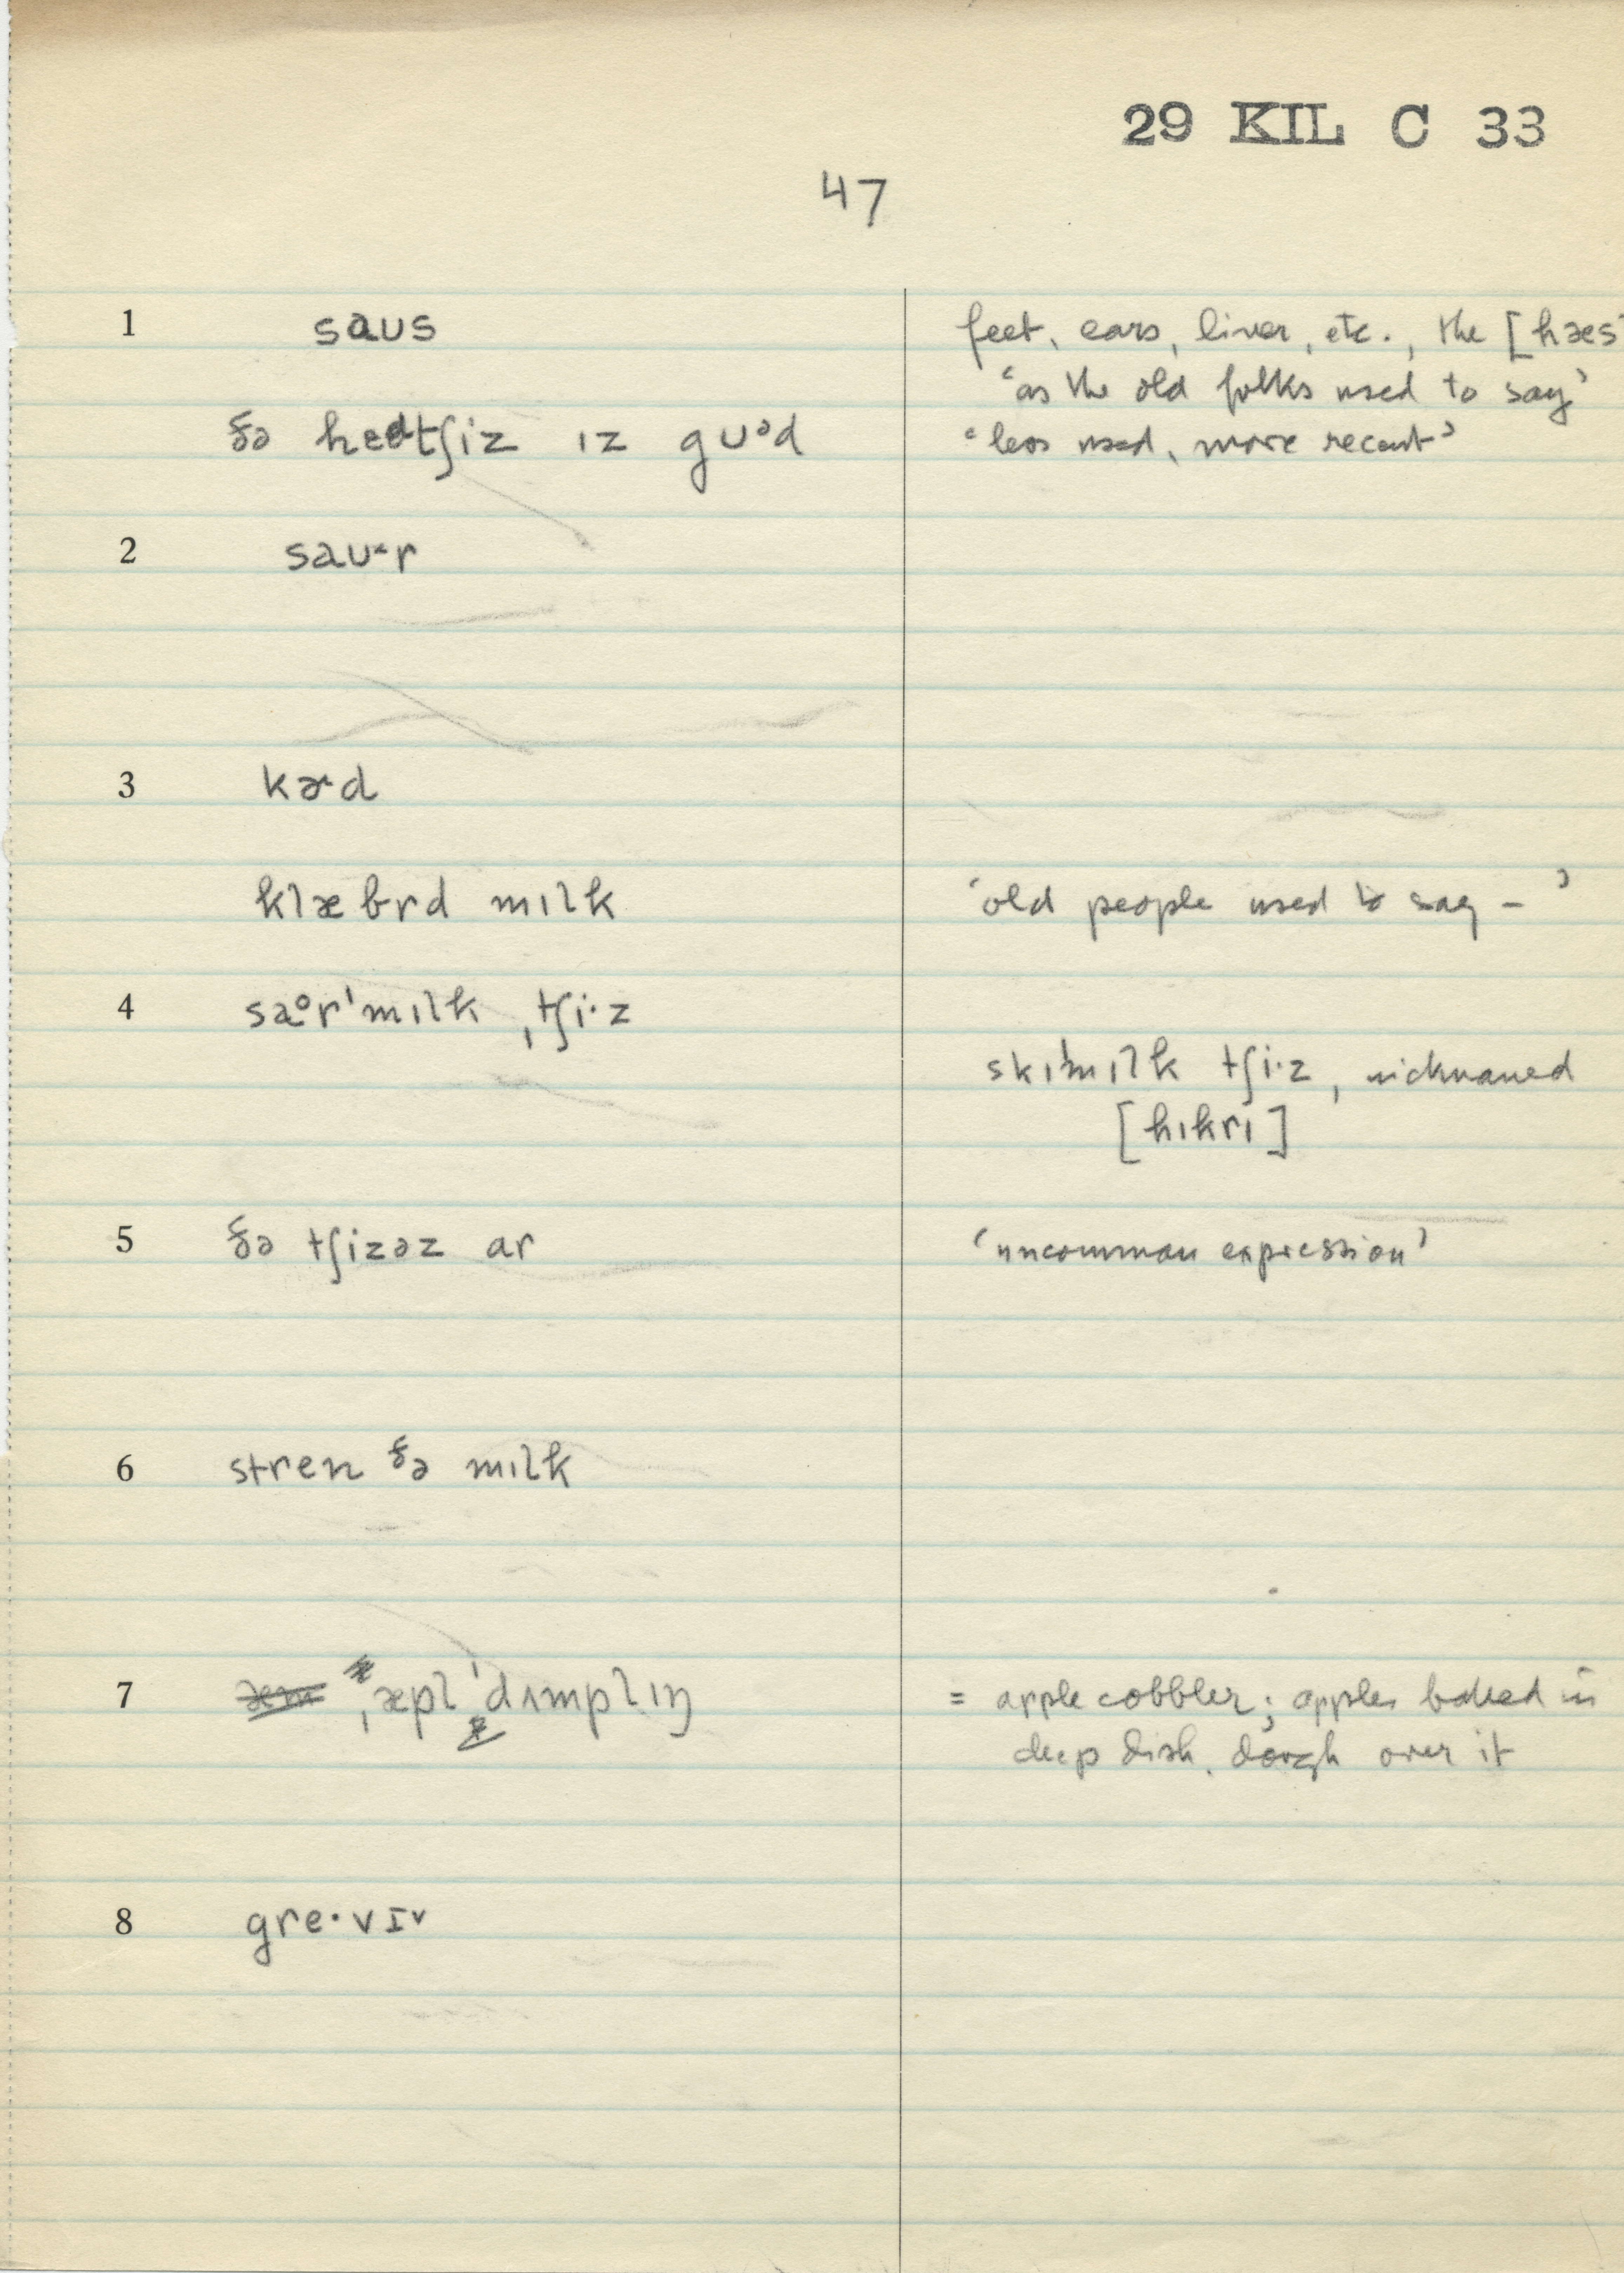 29 KIL C 33
47
1 saus feet, ears, liver, etc., the [hæs
'as the old folks used to say'
ðə hedtʃiz ɪz gʊᵊd 'less used, more recent'
2
3 kɚd
klæbrd mɪlk 'old people used to say – '
4 saᵒr'mɪlk ˌtʃi·z
skɪ'mɪlk tʃi·z, nicknamed
[hɪkrɪ]
5 ðə tʃizəz ar 'uncommon expression'
6 stren ðə mɪlk
7 ˌæpl 'dʌmplɪŋ = apple cobbler; apples baked in
deep dish, dough over it
8 gre·vɪᵛ